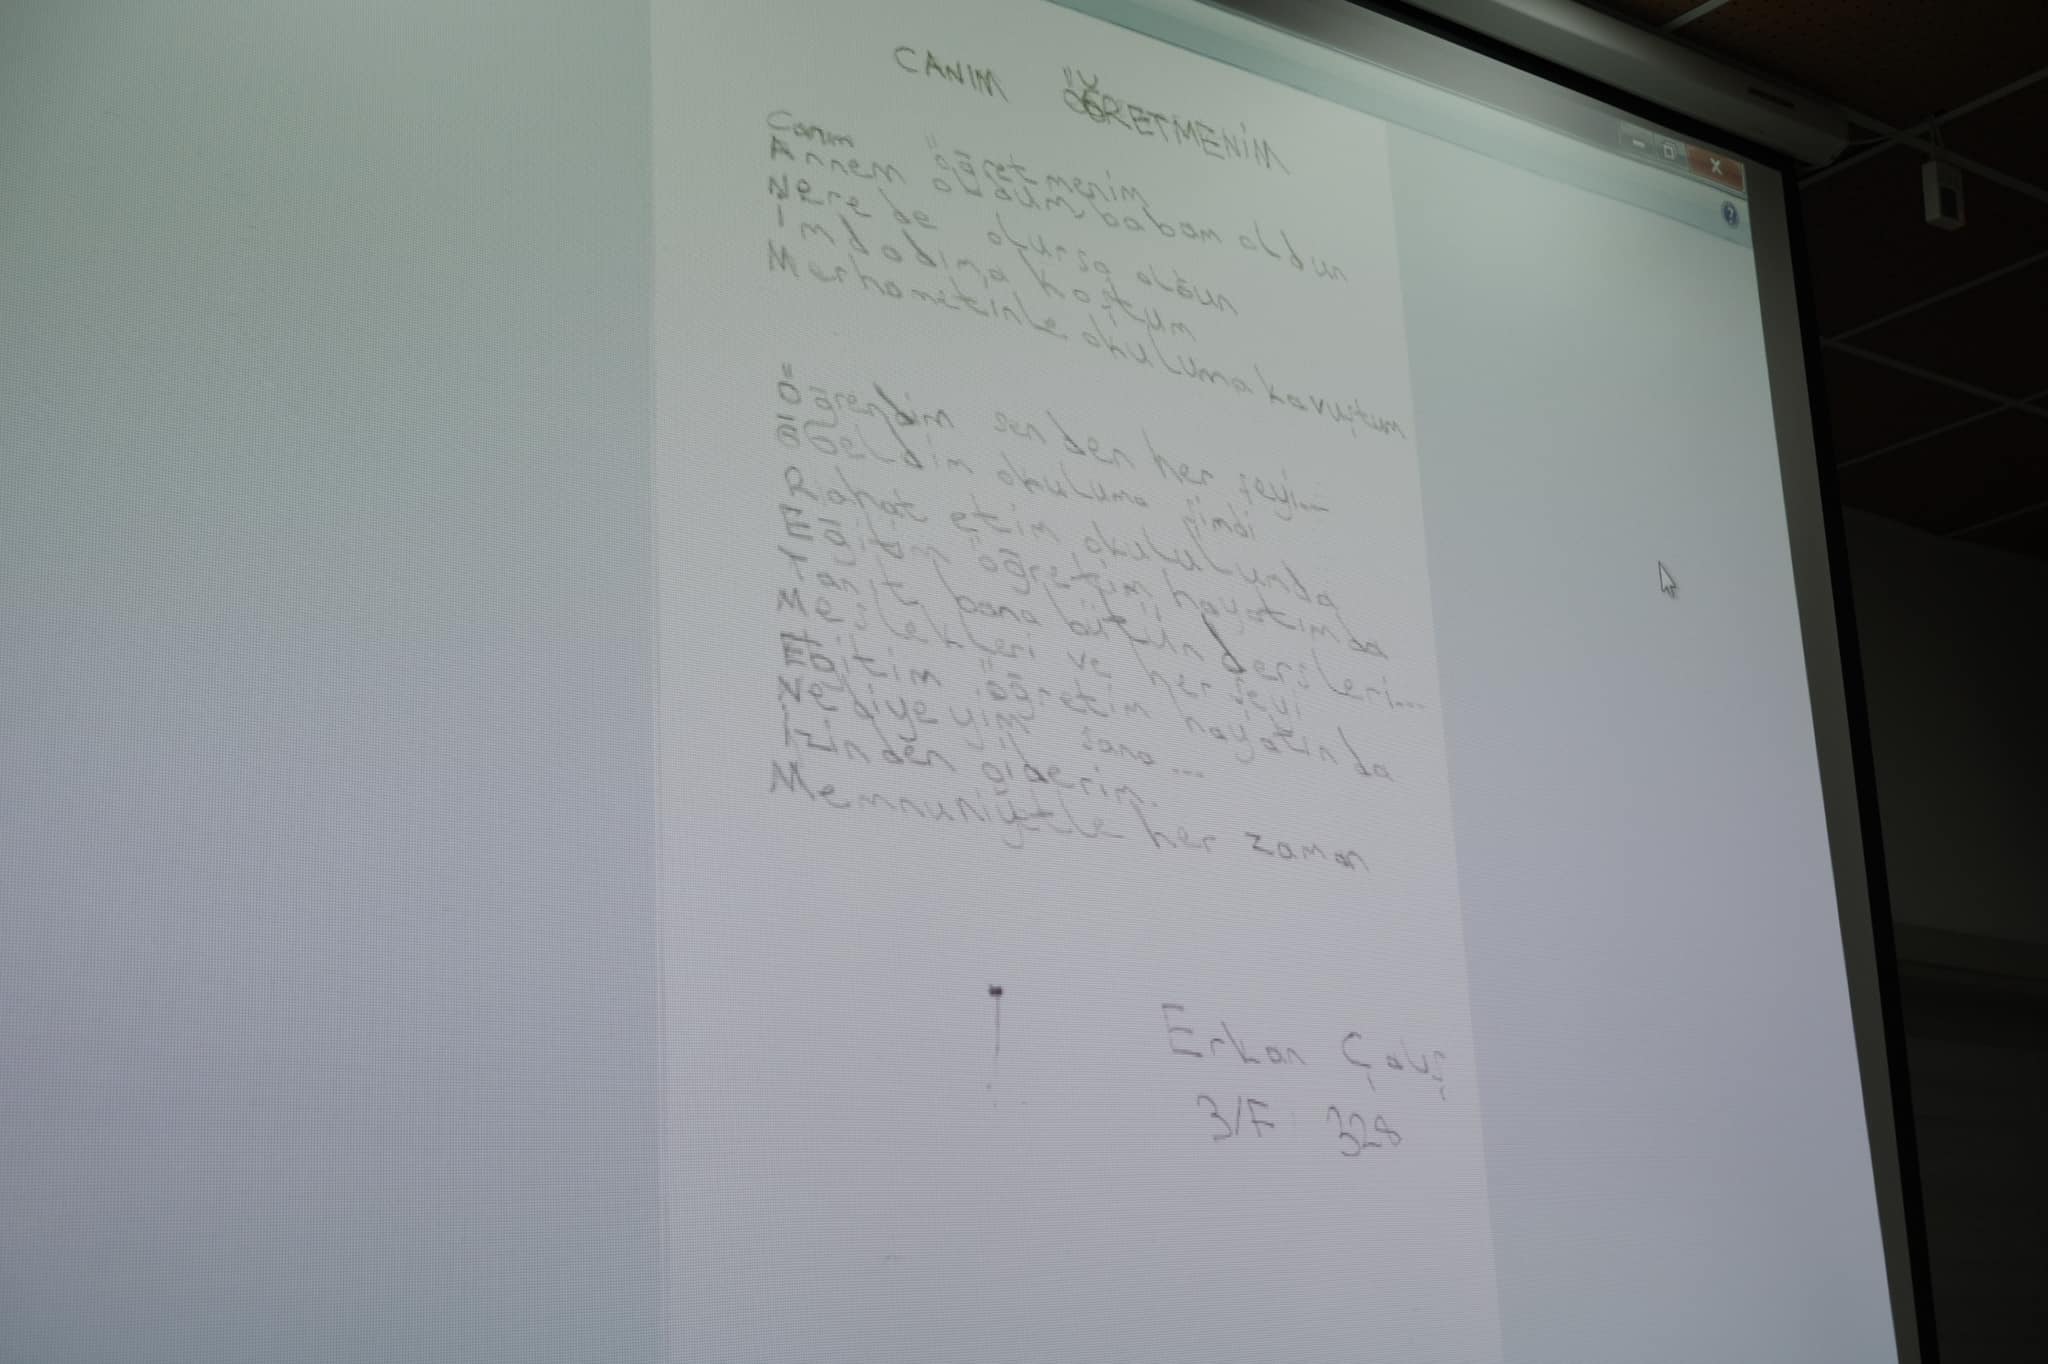 CANIM ÖĞRETMENİM
Canım öğretmenim
Annem oldum, babam oldun
Nerede olursa olsun
İmdadıma koştum
Merhametinle okuluma kavuştum
Öğrendim senden her şeyi...
Geldim okuluma şimdi
Rahat etim okulumda
Eğitim öğretim hayatımda
Tanıt bana bütün dersleri...
Meslekleri ve her şeyi
Eğitim öğretim hayatında
Ne diyeyim sana...
İzinden giderim.
Memnuniytle her zaman
Erkan Çalış
3/F 328